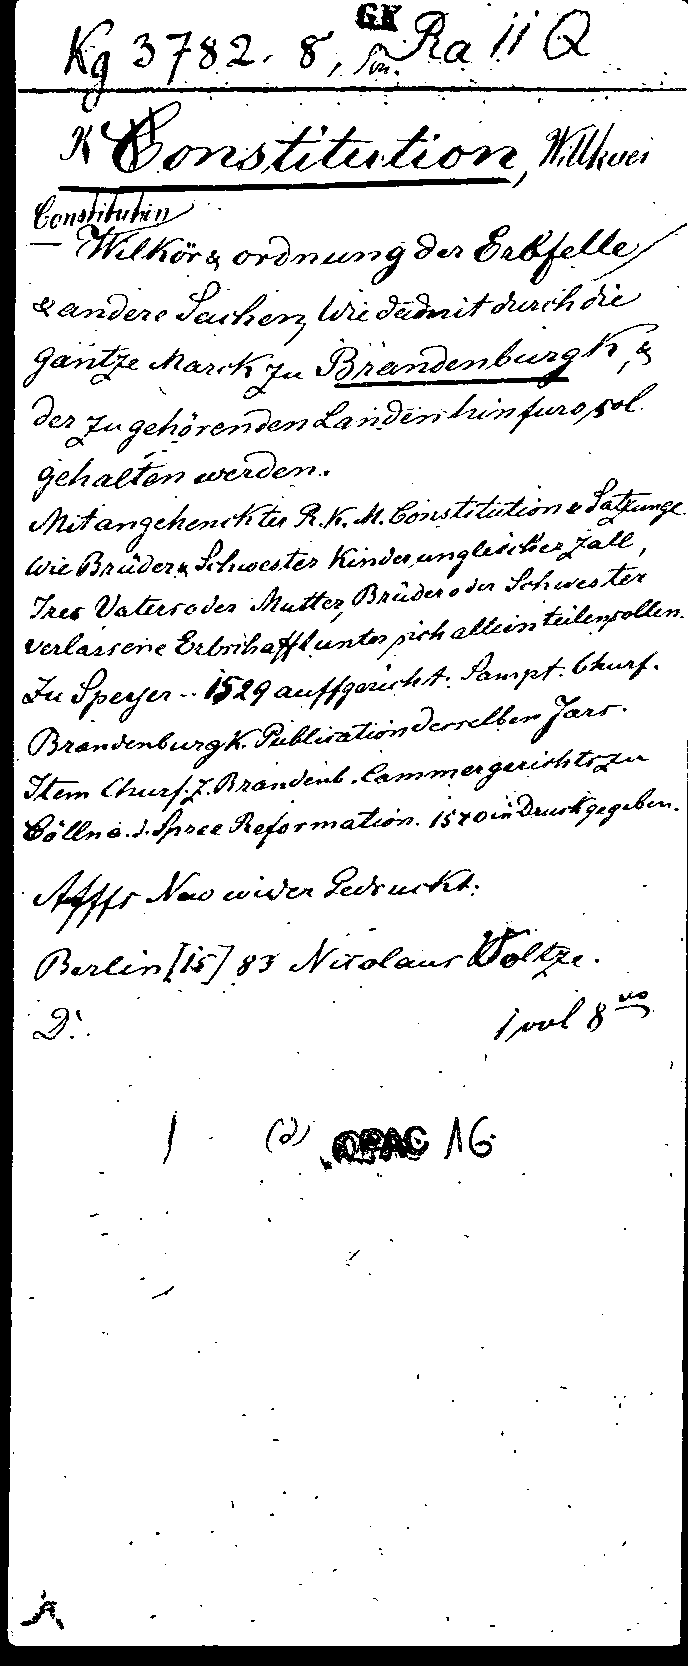 GK
Kg 3782. 8, Ra 11 Q
K Constitution, Willkuei
Constitution
Wilkör & ordnung der Erbfelle
& andere Sachen, Wie damit durch die
gantze Marck zu Brandenburgk, &
der zugehörenden Landen hinfuro, sol
gehalten werden.
Mit angehenckter R. K. M. Constitution & Satzunge
Wie Brüder & Schwester Kinder ungleicher Zall,
Ires Vaters oder Mutter, Brüder oder Schwester
verlassene Erbschafft unter sich allein teilen sollen.
Zu Speyer .. 1529 auffgericht. Sampt. Churf.
Brandenburgk. Publication desselben Jars.
Item Churf. z. Brandenb. Cammergerichts zu
Cölln a. d. Spree Reformation. 1540 in Druck gegeben.
Affs New wider Gedruckt.
Berlin [15] 83 Nicolaus Voltze.
D.
1 vol 8vo
1 (d) OPAC 16